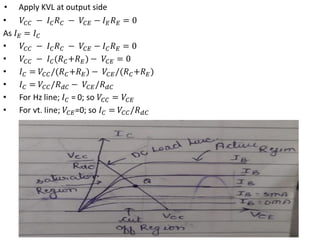 • Apply KVL at output side
• 𝑉𝐶𝐶 − 𝐼𝐶𝑅𝐶 − 𝑉𝐶𝐸 − 𝐼𝐸𝑅𝐸 = 0
As 𝐼𝐸 = 𝐼𝐶
• 𝑉𝐶𝐶 − 𝐼𝐶𝑅𝐶 − 𝑉𝐶𝐸 − 𝐼𝐶𝑅𝐸 = 0
• 𝑉𝐶𝐶 − 𝐼𝐶(𝑅𝐶+𝑅𝐸) − 𝑉𝐶𝐸 = 0
• 𝐼𝐶 = 𝑉𝐶𝐶/(𝑅𝐶+𝑅𝐸) − 𝑉𝐶𝐸/(𝑅𝐶+𝑅𝐸)
• 𝐼𝐶 = 𝑉𝐶𝐶/𝑅𝑑𝐶 − 𝑉𝐶𝐸/𝑅𝑑𝐶
• For Hz line; 𝐼𝐶 = 0; so 𝑉𝐶𝐶 = 𝑉𝐶𝐸
• For vt. line; 𝑉𝐶𝐸=0; so 𝐼𝐶 = 𝑉𝐶𝐶/𝑅𝑑𝐶
IC
VCC
Rdc
DC Load Line
Active
Region
IB
IB
IB
IB = 5mA
IB = 0mA
Region
Q
cut
off Region
VCC
VCE